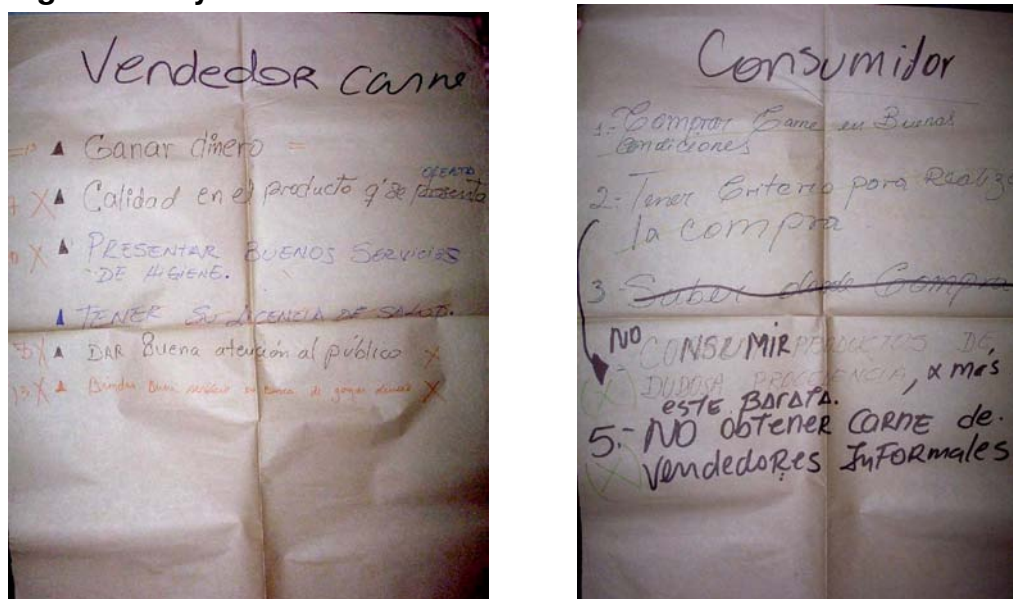 Vendedor carne
Ganar dinero =
Calidad en el producto q' se presenta
OFERTA
PRESENTAR BUENOS SERVICIOS
DE HIGIENE.
TENER SU LICENCIA DE SALUD.
DAR Buena atención al público X
Brindar Buen servicio en de ganar dinero X
Consumidor
1.- Comprar Carne en Buenas
Condiciones
2.- Tener Criterio para Realiza
la compra
3 Saber donde Compra
NO CONSUMIR PRODUCTOS DE
DUDOSA PROCEDENCIA, x más
este BARATA.
5.- NO obTENER CARNE de.
VendedoRes InFORmales